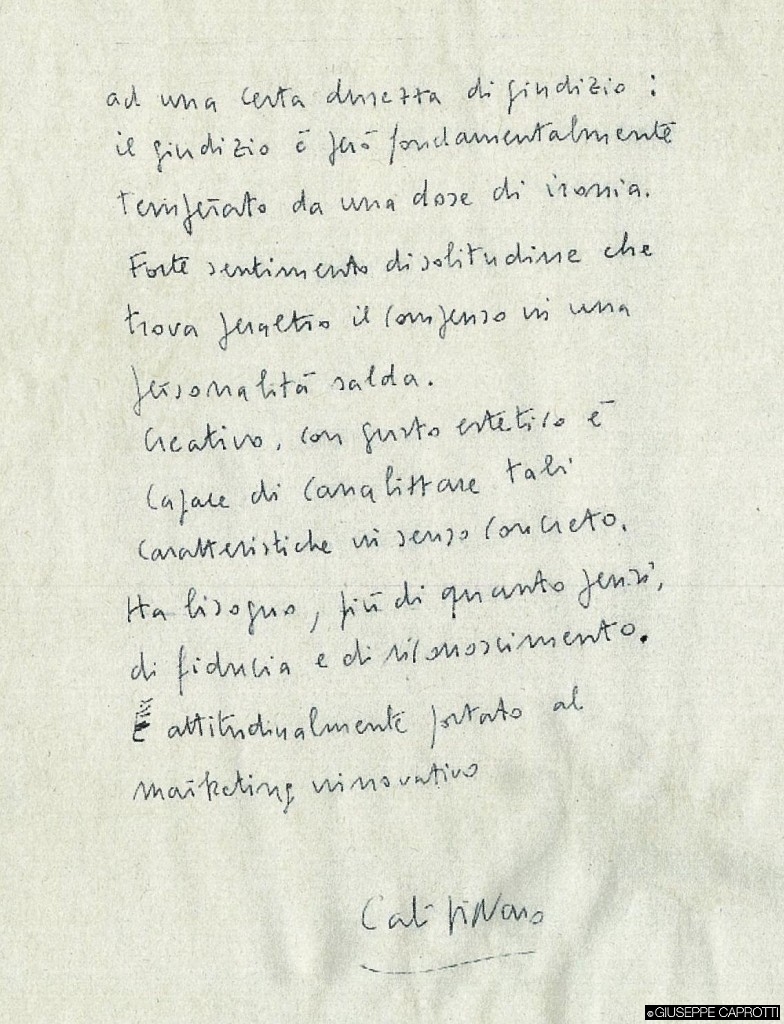 ad una certa durezza di giudizio :
il giudizio è però fondamentalmente
temperato da una dose di ironia.
Forte sentimento di solitudine che
trova peraltro il compenso in una
personalità salda.
Creativo, con gusto estetico è
capace di canalizzare tali
caratteristiche in senso concreto.
Ha bisogno, più di quanto pensi,
di fiducia e di riconoscimento.
È attitudinalmente portato al
marketing innovativo
©GIUSEPPE CAPROTTI